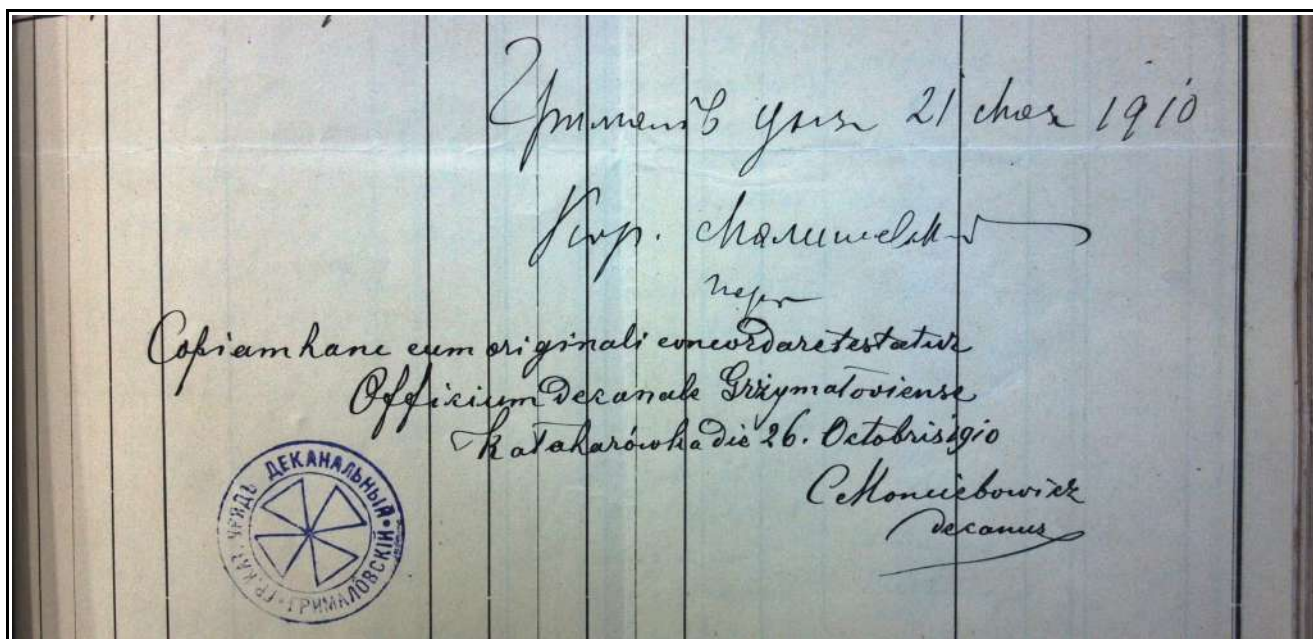 Грималів дня 21 мая 1910
Кор. Малишевскій
Copiam hanc cum originali concordare testatur
Officium decanale Grzymałoviense
Kałaharówka die 26. Octobris 1910
CMonciebowicz
decanus
ГР. КАТ. УРЯДЪ ДЕКАНАЛЬНЫЙ • ГРИМАЛОВСКІЙ •